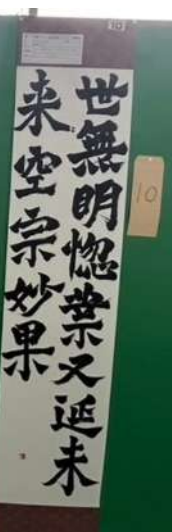 世無明惚業又延未
来空宗妙果
10
10